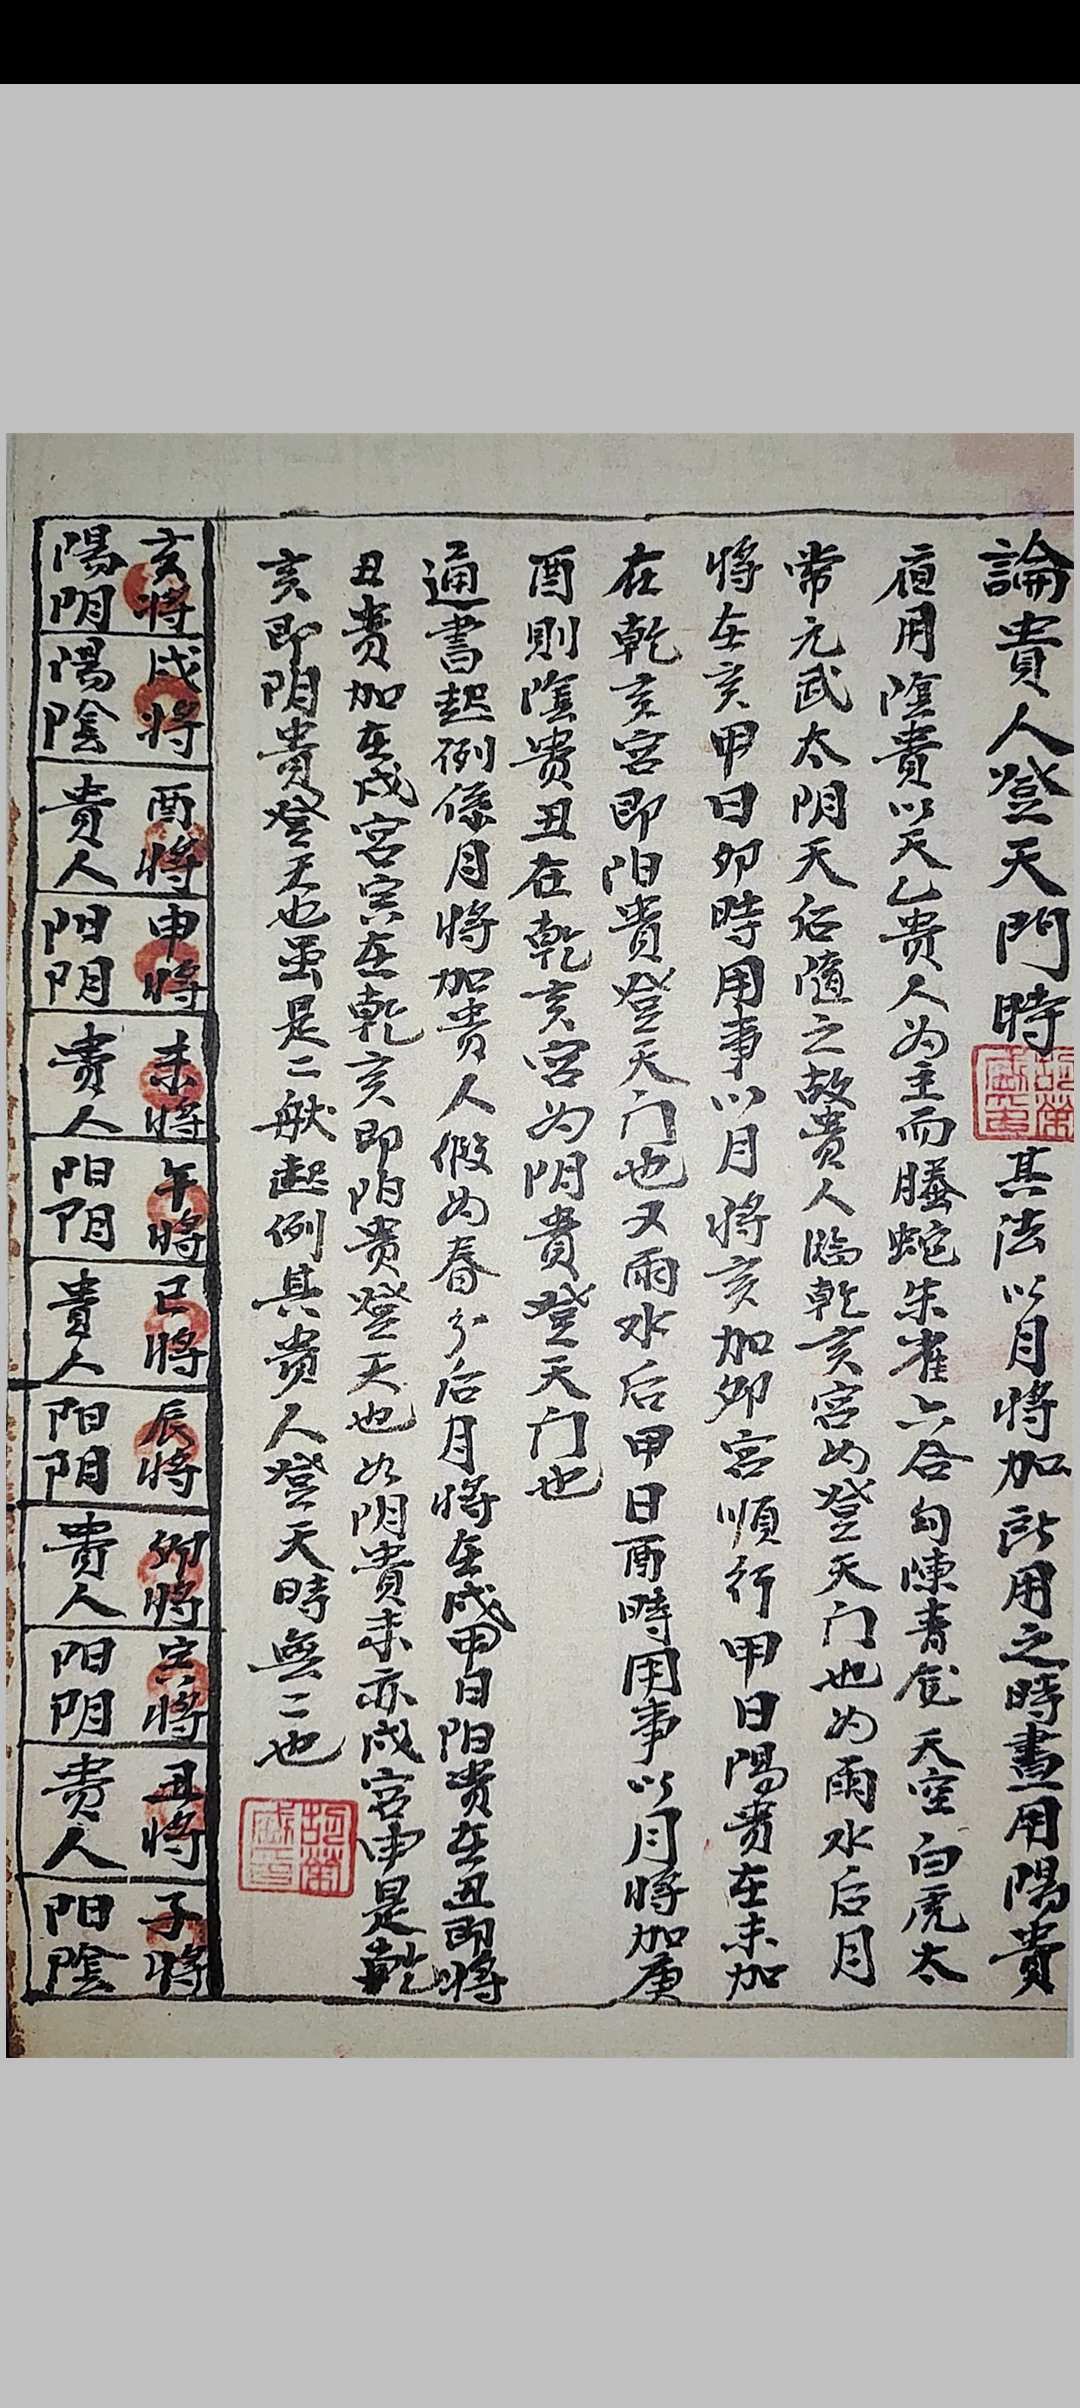 論貴人登天門時其法以月將加所用之時晝用陽貴
夜用陰貴以天乙贵人为主而螣蛇朱雀六合勾陳青龙天空白虎太
常元武太阴天后随之故贵人临乾亥宫如登天门也如雨水后月
將在亥甲日卯時用事以月將亥加卯宫順行甲日陽贵在未加
在乾亥宫即阳貴登天门也又雨水后甲日酉時用事以月將加庚
酉則陰贵丑在乾亥宫为阴貴登天门也
通書起例係月將加贵人假如春分后月將在戌甲日阳贵在丑即將
丑贵加在戌宫寅在乾亥即阳贵登天也如阴貴未亦戌宫申是乾
亥即阴貴登天也虽是二般起例其贵人登天時無二也
亥將 戌將 酉將 申將 未將 午將 巳將 辰將 卯將 寅將 丑將 子將
陽阴 陽陰 貴人 阳阴 贵人 阳阴 貴人 阳阴 贵人 阳阴 贵人 阳陰